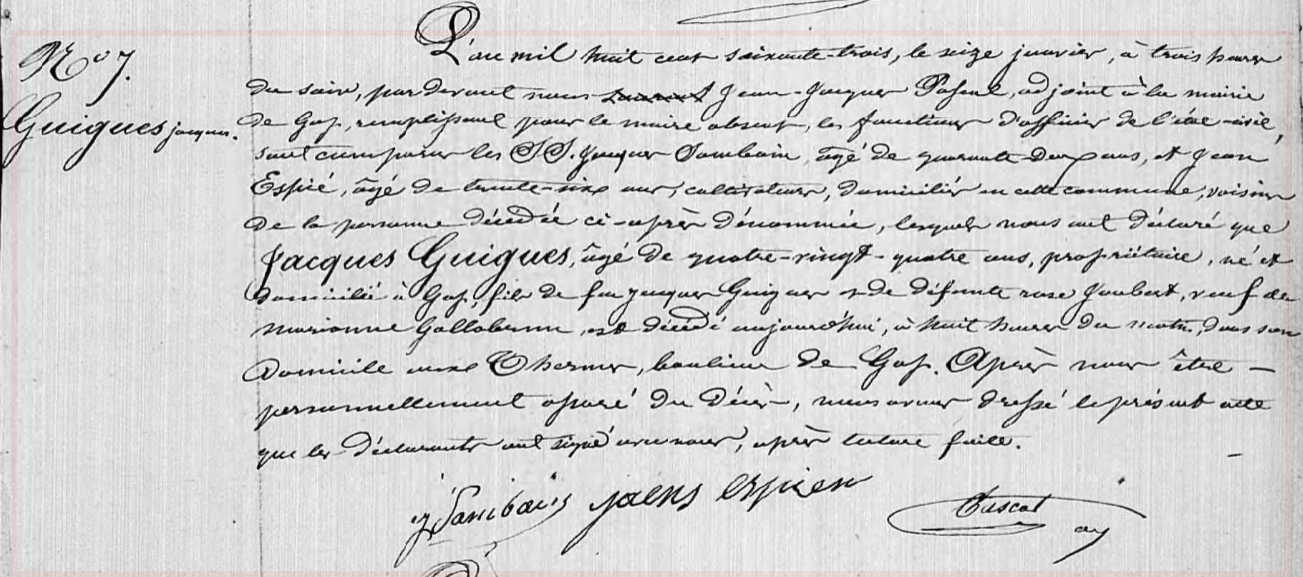 N.° 7.
Guigues jacques.
L'an mil huit cent soixante-trois, le seize janvier, à trois heures
du soir, pardevant nous Jean-Jacques Pascal, adjoint à la mairie
de Gap, remplissant pour le maire absent, les fonctions d'officier de l'état-civil,
sont comparus les SS. Jacques Sambain, âgé de quarante-deux ans, et Jean
Espié, âgé de trente-six ans, cultivateurs, domiciliés en cette commune, voisins
de la personne décédée ci-après dénommée, lesquels nous ont déclaré que
Jacques Guigues, âgé de quatre-vingt-quatre ans, propriétaire, né et
domicilié à Gap, fils de feu jacques Guigues et de défunte rose Joubert, veuf de
marianne, est décédé aujourd'hui, à huit heures du matin, dans son
domicile aux Thermes, banlieue de Gap. Après nous être
personnellement assuré du décès, nous avons dressé le présent acte
que les déclarants ont signé avec nous, après lecture faite.
j Sambain jaens espien Pascal